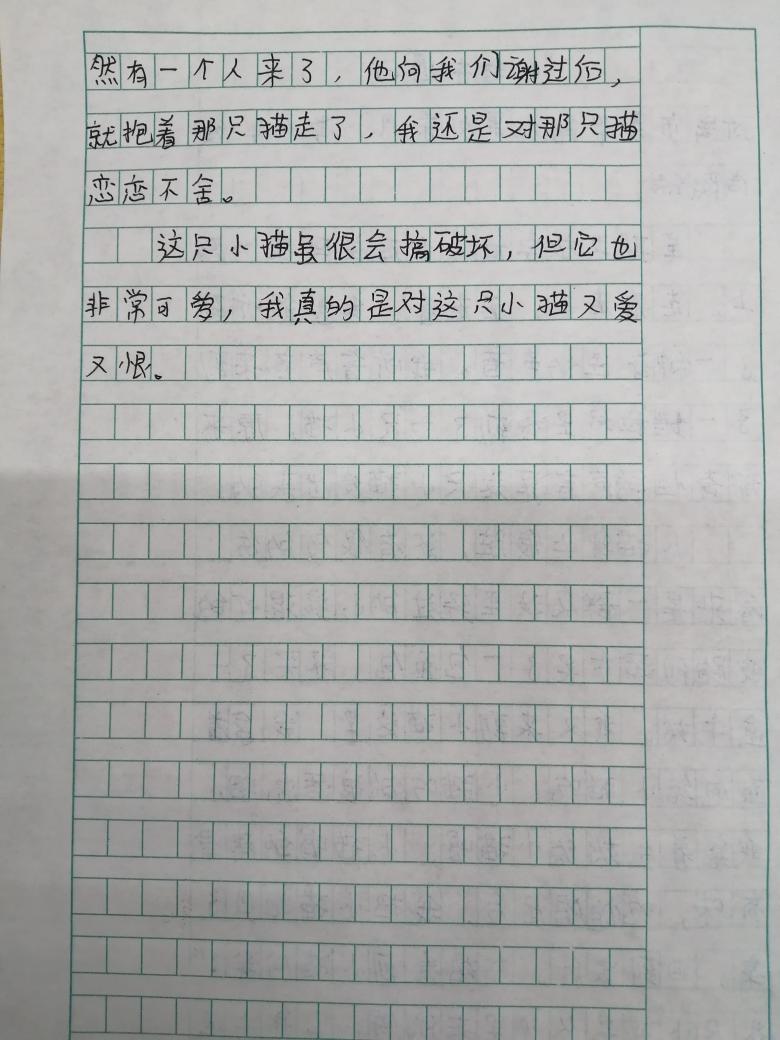 然有一个人来了，他向我们谢过后，
就抱着那只猫走了，我还是对那只猫
恋恋不舍。
这只小猫虽很会搞破坏，但它也
非常可爱，我真的是对这只小猫又爱
又恨。